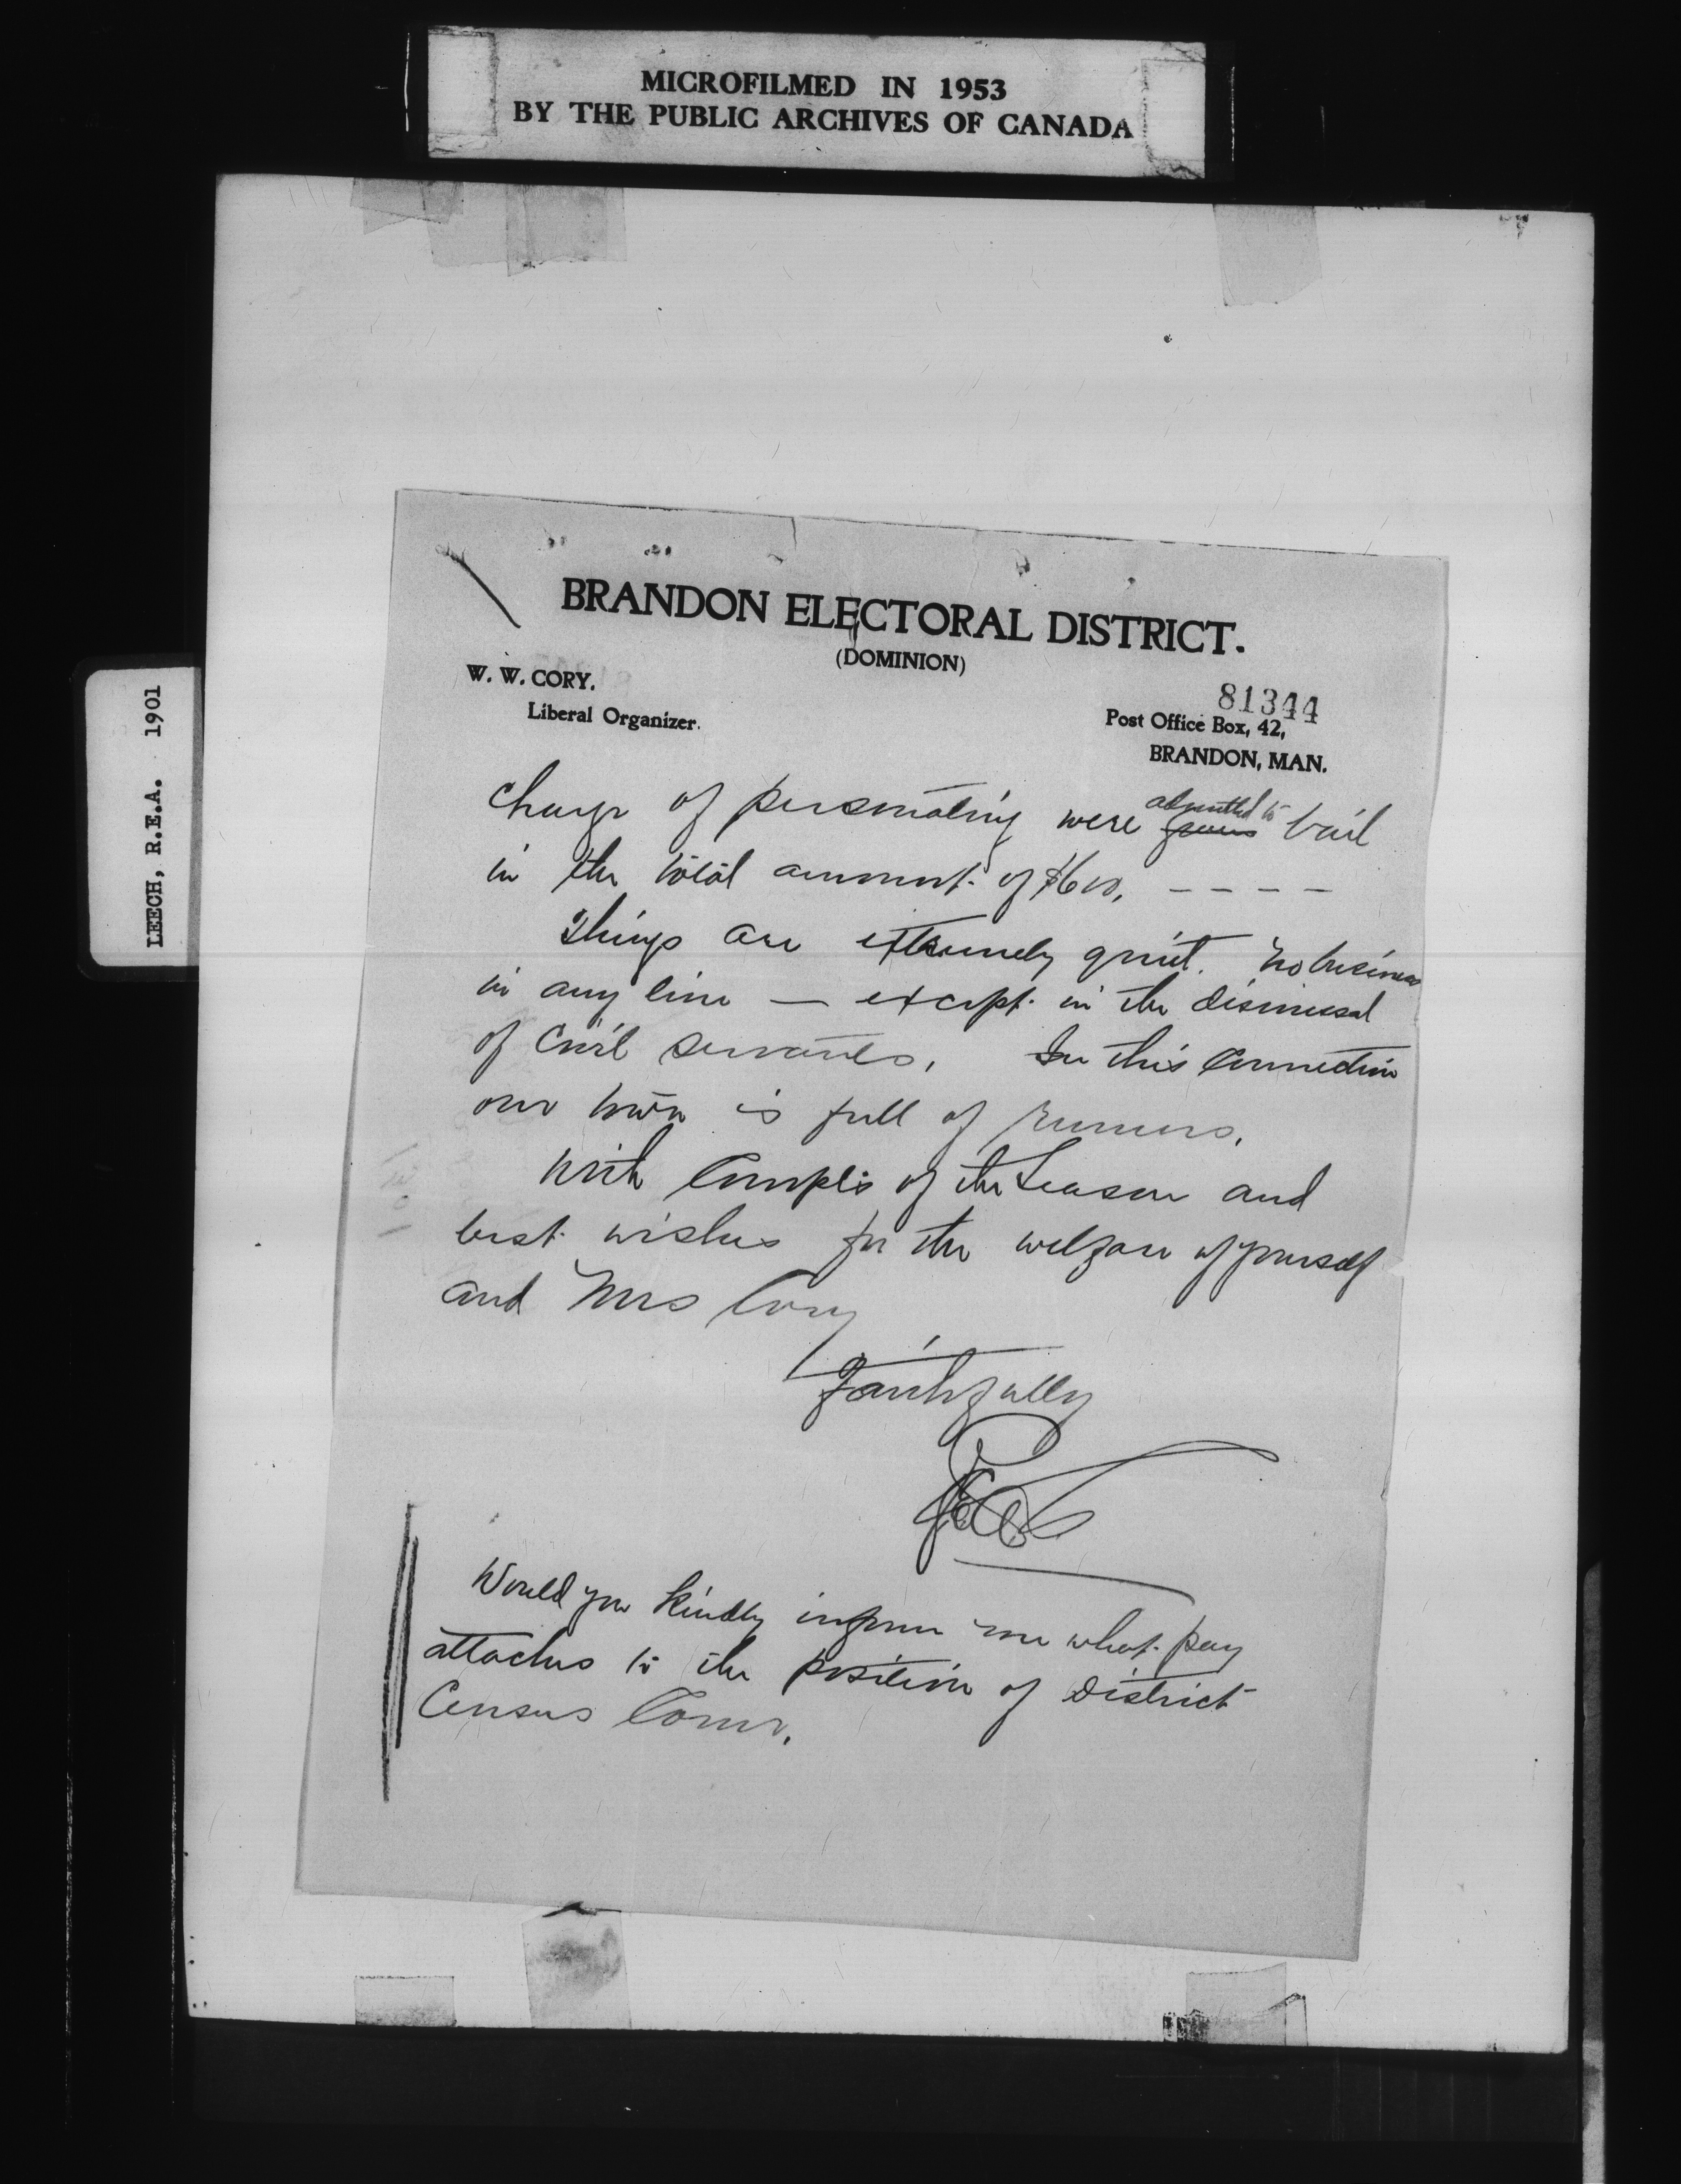 MICROFILMED IN 1953
BY THE PUBLIC ARCHIVES OF CANADA
LEECH, R.E.A. 1901
BRANDON ELECTORAL DISTRICT.
(DOMINION)
W. W. CORY.
Liberal Organizer.
81344
Post Office Box, 42,
BRANDON, MAN.
admitted to
charge of personating were given bail
in the total amount of $600. – – – –
Things are extremely quiet. No business
in any line — except in the dismissal
of Civil Servants. In this Connection
our town is full of rumors.
With Complis of the Season and
best wishes for the welfare of yourself
and Mrs Cory
Faithfully
Would you kindly inform me what pay
attaches to the position of District
Census Comr.